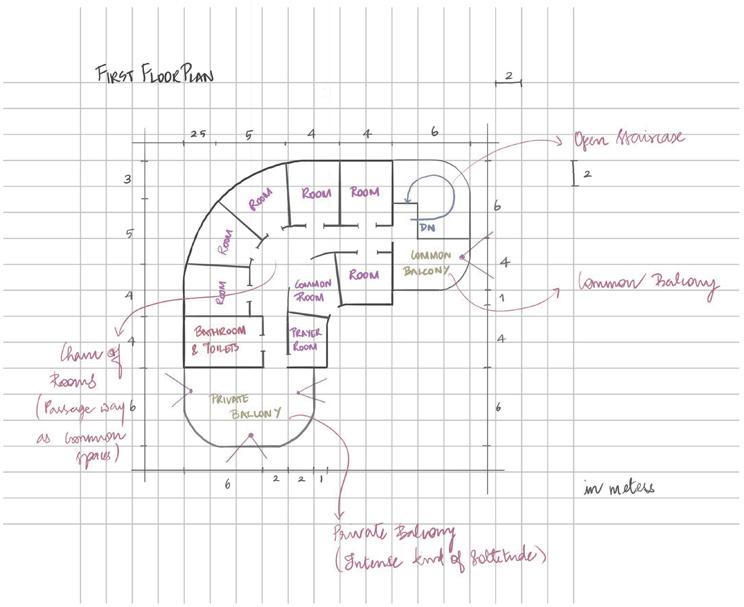 FIRST FLOOR PLAN
2
2.5 5 4 4 6
Open Staircase
3
2
ROOM
ROOM
ROOM
ROOM
6
DN
5
ROOM
COMMON
BALCONY
4
ROOM
ROOM
COMMON
ROOM
Common Balcony
4
1
BATHROOM
& TOILETS
PRAYER
ROOM
4
4
Chain of
Rooms
(Passage way
as common
spaces)
6
PRIVATE
BALCONY
6
6 2 2 1
in meters
Private Balcony
(Intense kind of Soltitude)